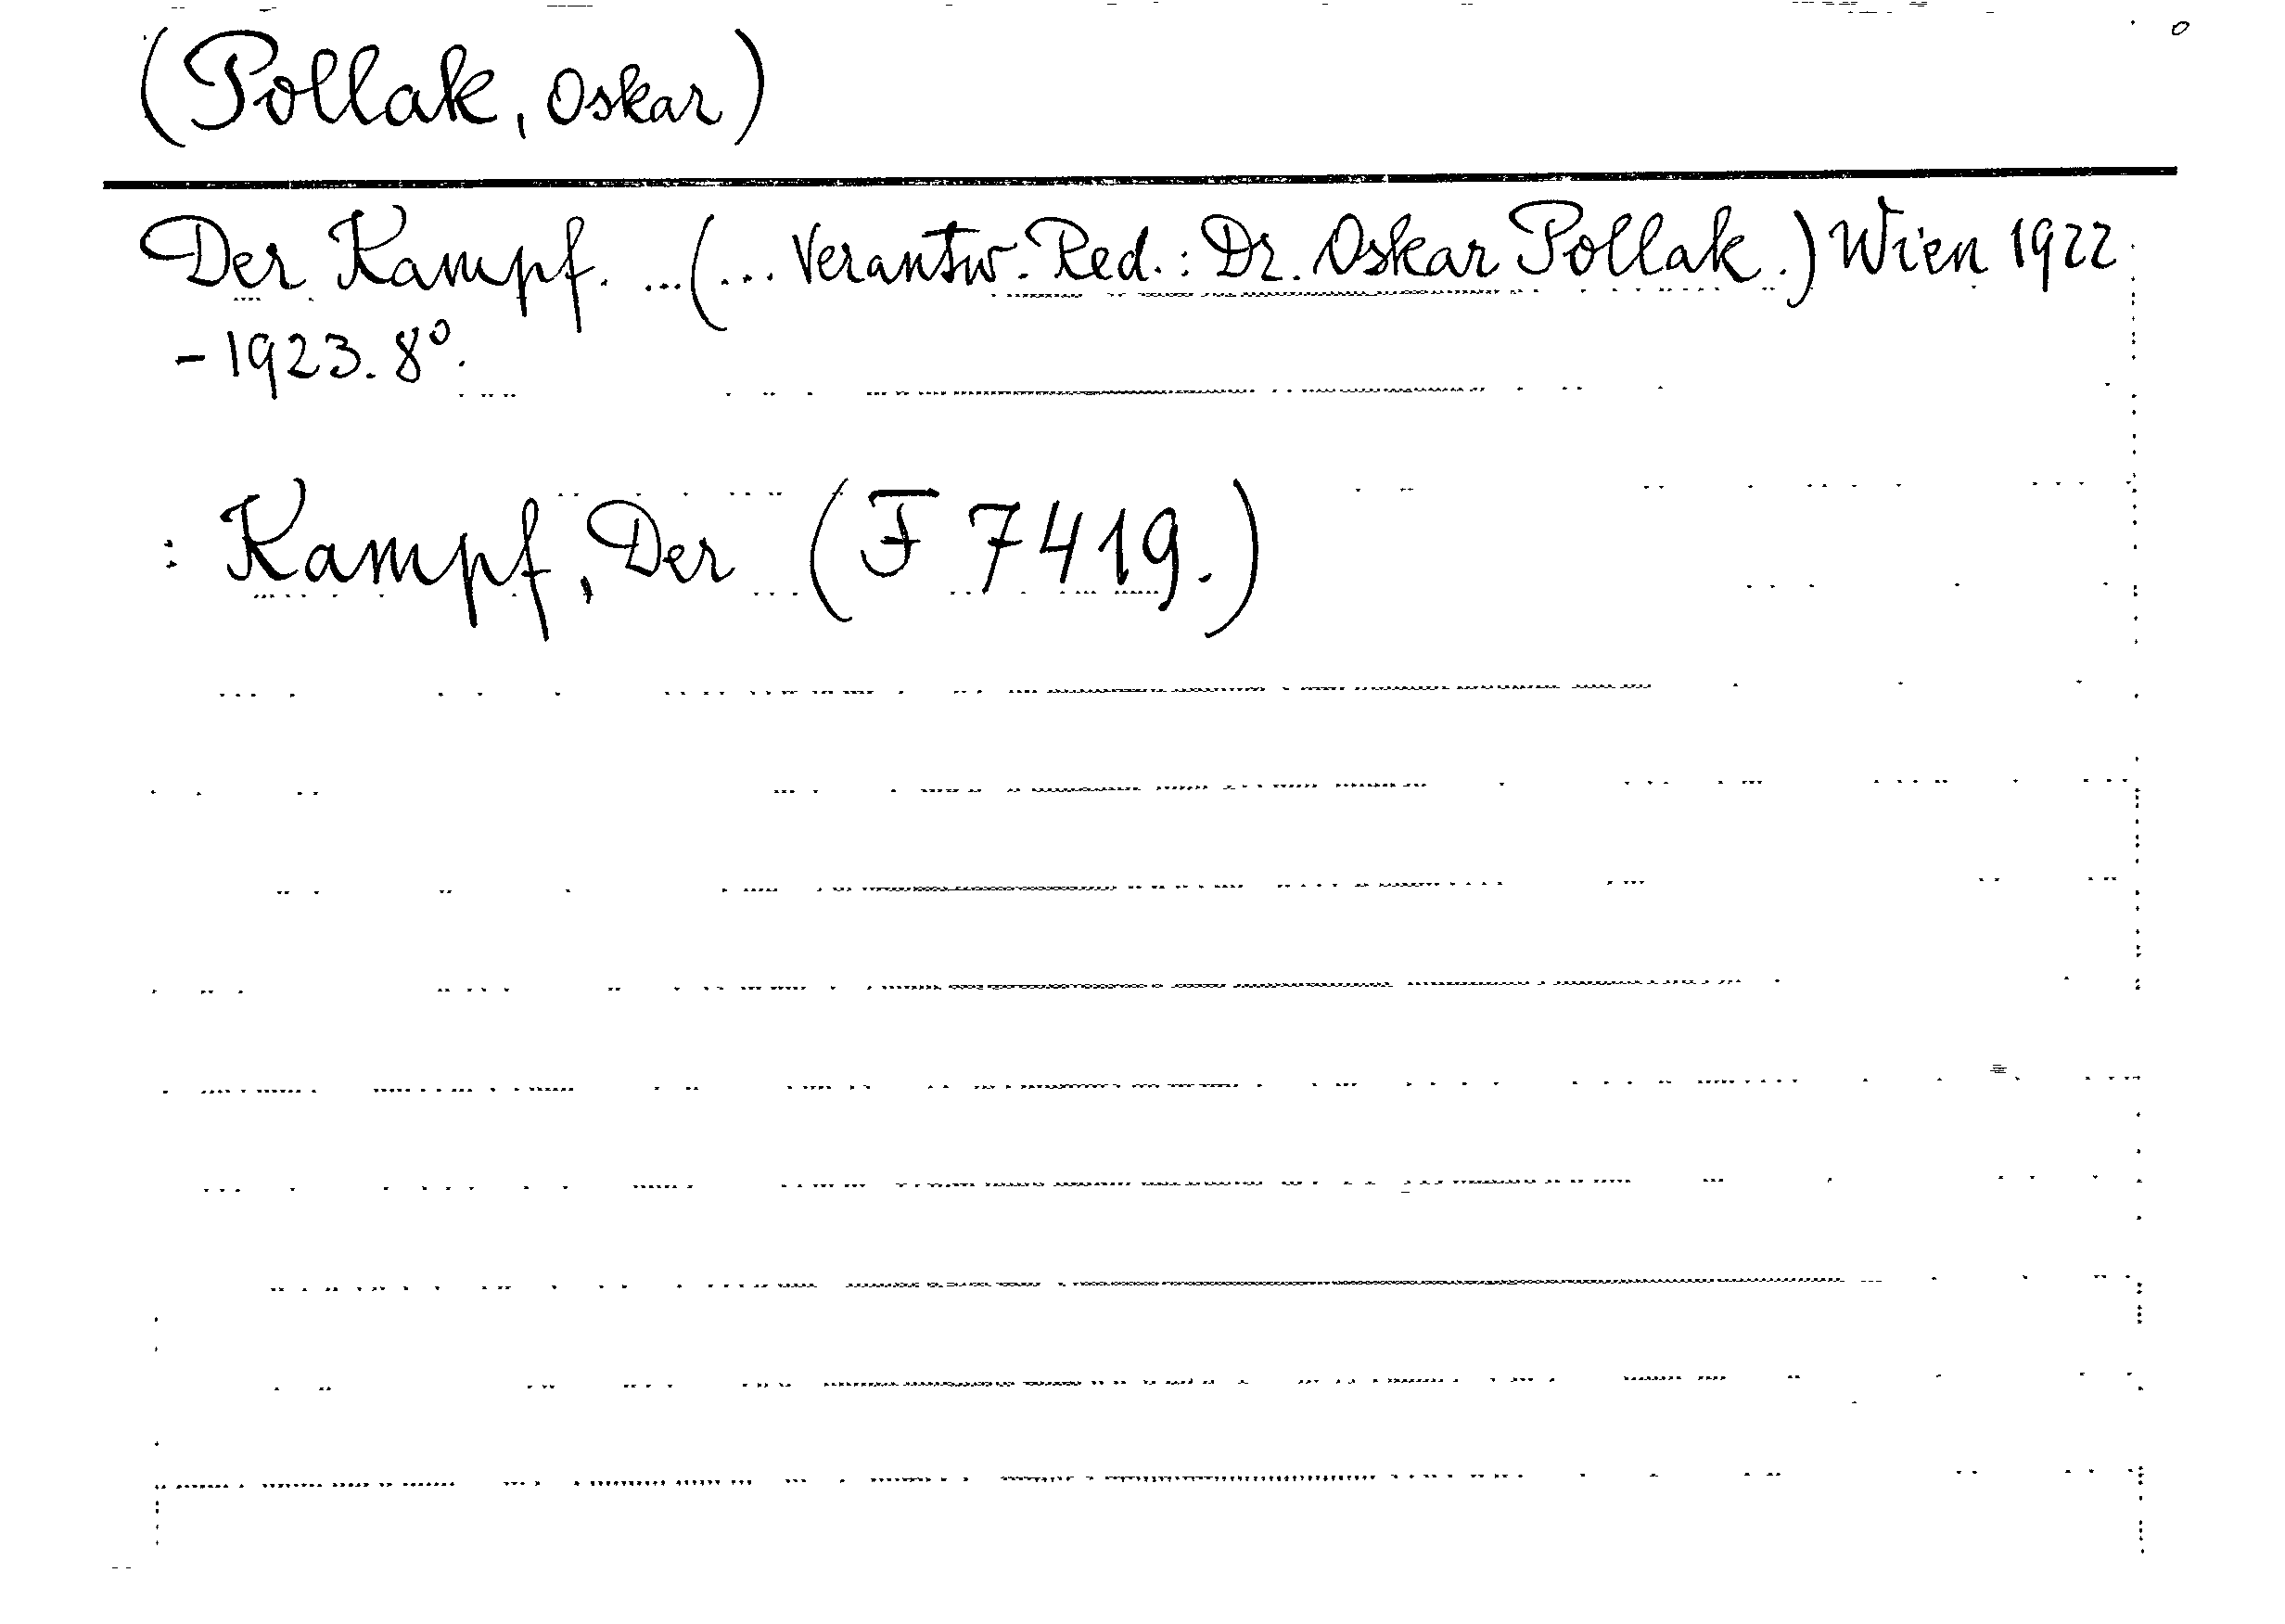 (Pollak, Oskar)
Der Kampf. ...(... Verantw. Red.: Dr. Oskar Pollak.) Wien 1922
-1923. 8º.
: Kampf, Der (F 7419.)